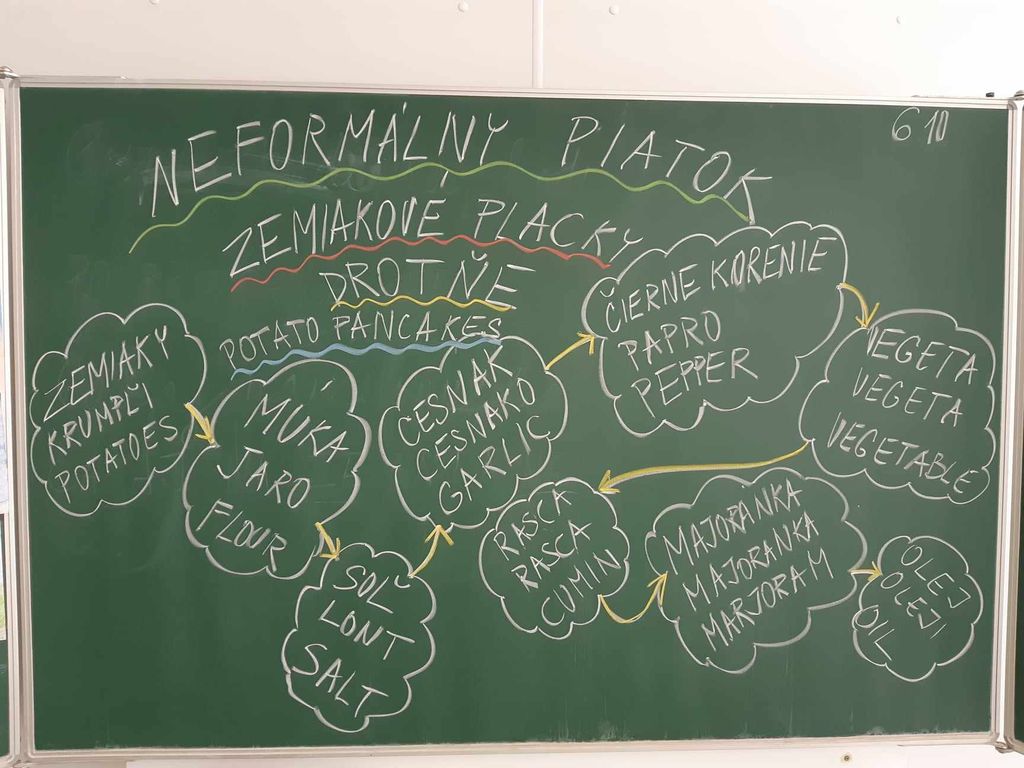 NEFORMÁLNY PIATOK
6 10
ZEMIAKOVÉ PLACKY
DROTŇE
POTATO PANCAKES
ZEMIAKY
KRUMPĽI
POTATOES
MÚKA
JARO
FLOUR
SOĽ
LONT
SALT
CESNAK
CESNAKO
GARLIC
ČIERNE KORENIE
PAPRO
PEPPER
VEGETA
VEGETA
VEGETABLE
RASCA
RASCA
CUMIN
MAJORANKA
MAJORANKA
MARJORAM
OLEJ
OLEJI
OIL